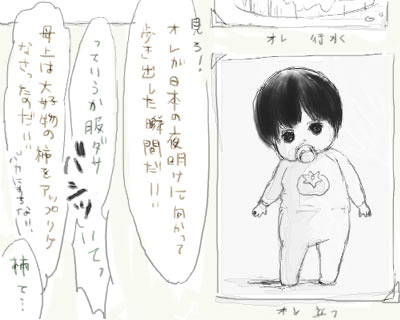 見ろ!
オレが日本の夜明けに向かって
歩き出した瞬間だ!!
っていうか服ダサ
バシッ
いてっ
母上は大好物の柿をアップリケ
なさったのだ!!
バカにすんな!!
柿て…
オレ 行水
オレ 立つ